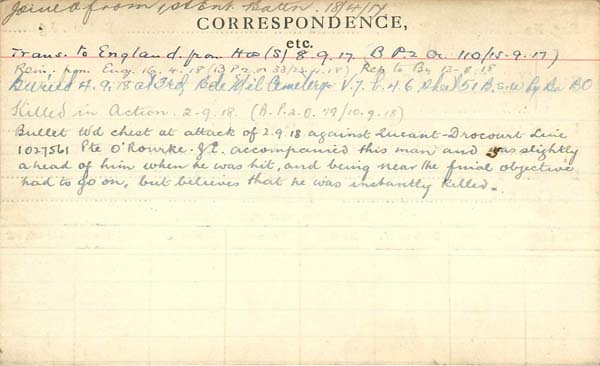 Joined from 1st Ent. Baten. 18/4/17
CORRESPONDENCE,
etc.
Trans. to England. from Hos (S) 8.9.17. B P2 Or. 110/15.9.17)
Rein: from Eng. 16.4.18 (B P2. or 33/23.4.18) Rep to Bn 13.8.18
Buried 4.9.18 at 3rd Bde Mil Cemetery V.7.b.4.6 Sheet 51 B.S.W
Killed in Action. 2.9.18. (B.P.2.O. 79/10.9.18)
Bullet Wd chest at attack of 2.9.18 against Queant-Drocourt Line
1027561 Pte O'Rourke. J.E. accompanied this man and was slightly
ahead of him when he was hit, and being near the final objective
had to go on, but believes that he was instantly killed.